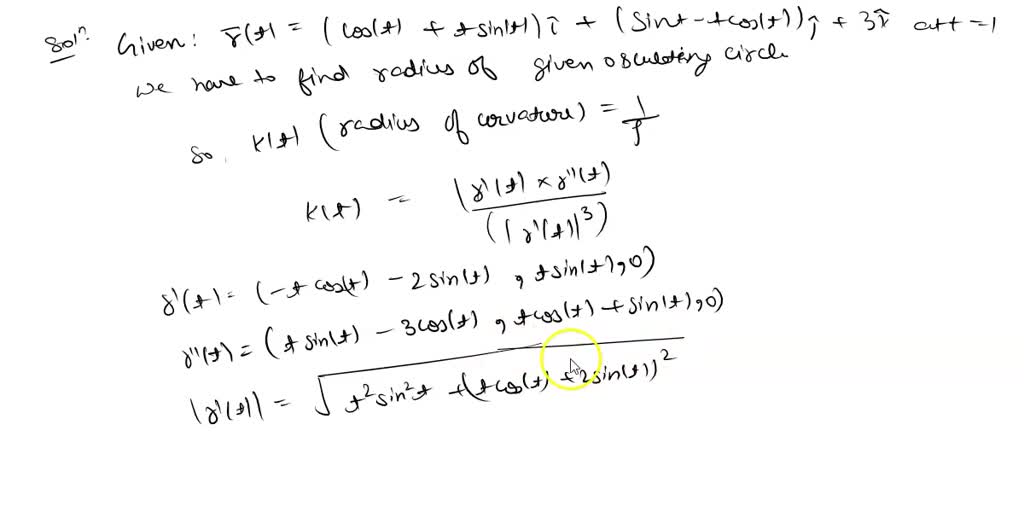 Solⁿ Given: r̄(t) = (cos(t) + tsin(t)) î + (sint - tcos(t)) ĵ + 3k̂ at t = 1
we have to find radius of given osculating circle
So, K(t) (radius of corvature) = 1/ρ
K(t) = |r'(t) × r''(t) / (|r'(t)|³)
r'(t) = (-t cos(t) - 2 sin(t) , t sin(t), 0)
r''(t) = (t sin(t) - 3cos(t) , tcos(t) + sin(t), 0)
|r'(t)| = √(t² sin²t + (t cos(t) + 2sin(t))²